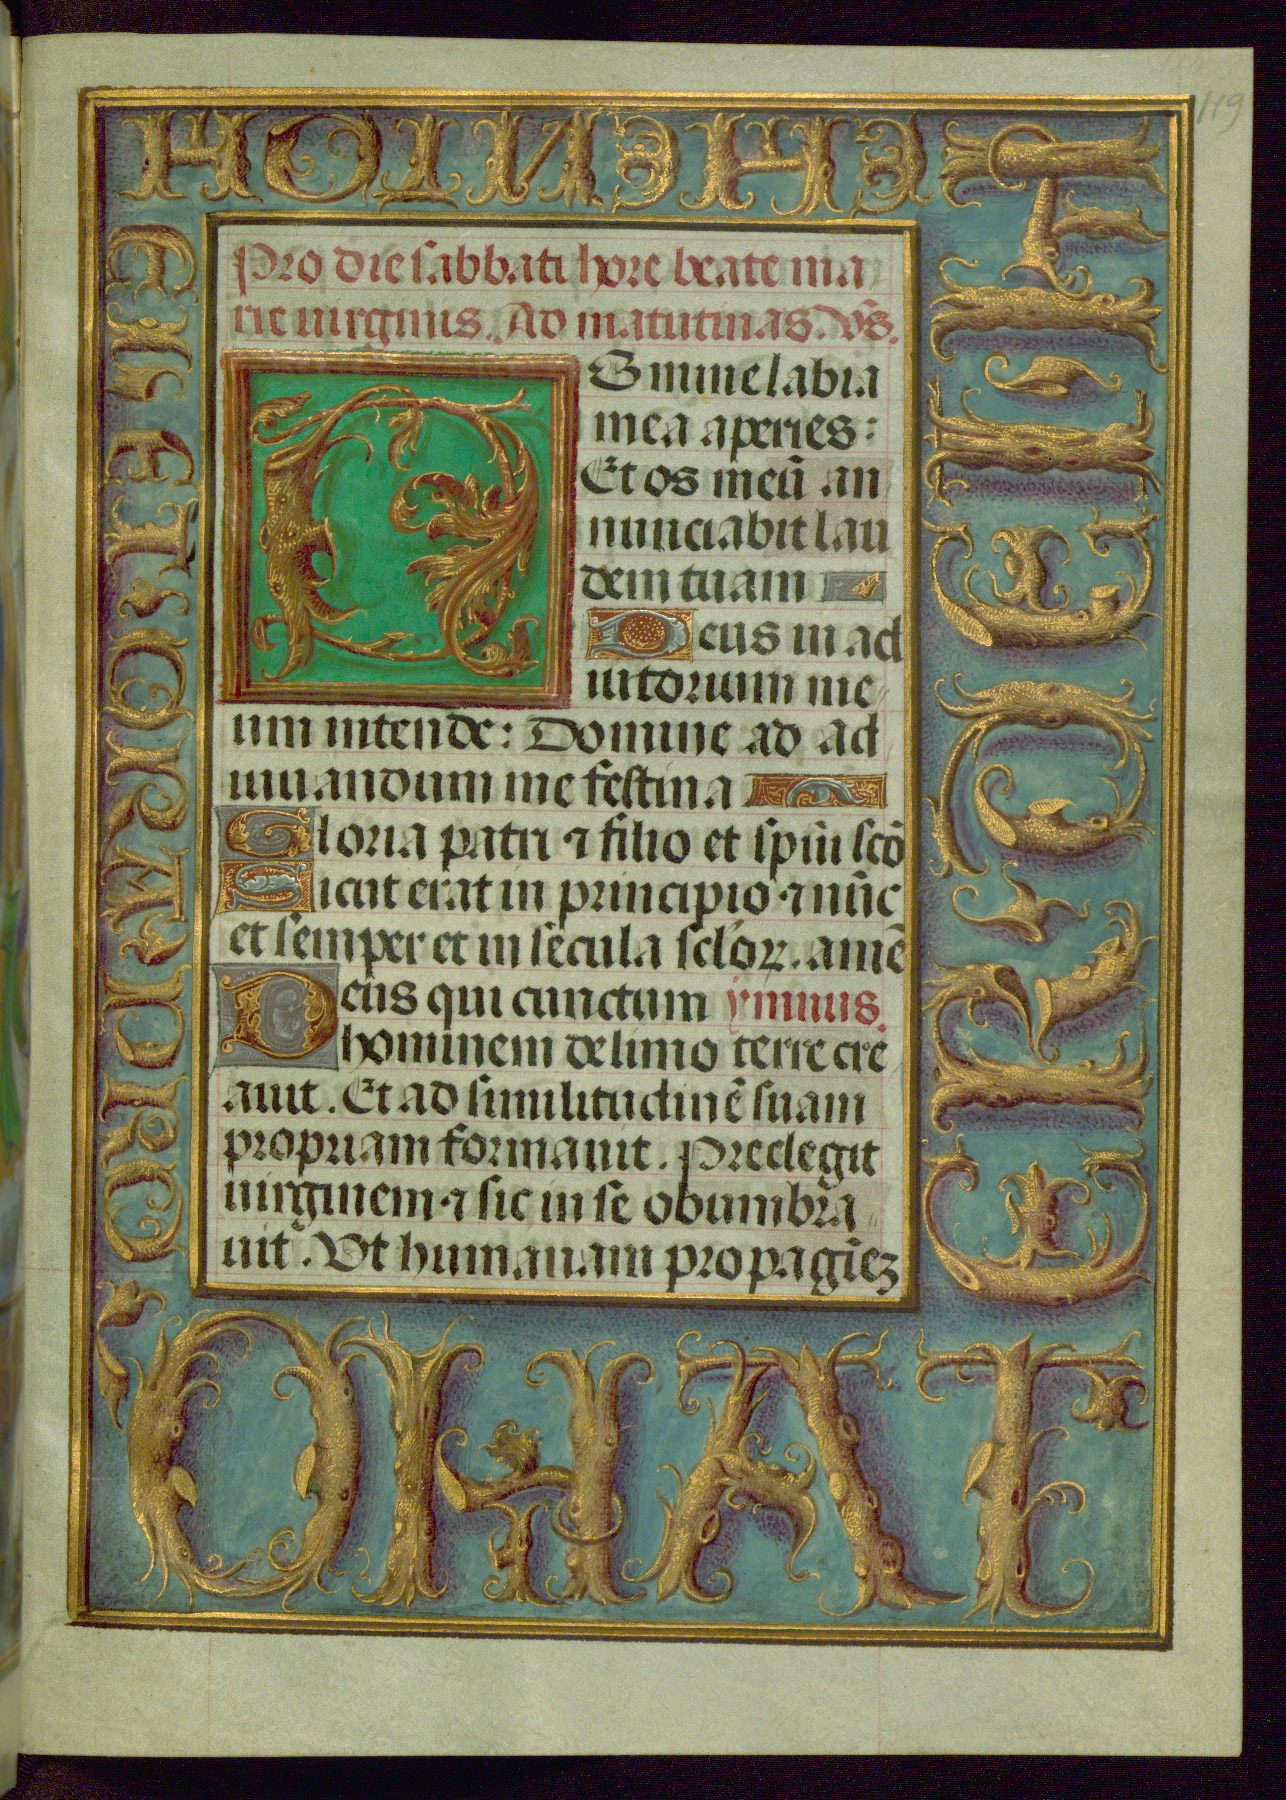 Pro die sabbati hore beate ma
rie uirginis. Ad matutinas. Vs̃.
Omine labia
mea aperies:
Et os meũ an
nunciabit lau
dem tuam
Deus in ad
iutorium me
um intende: Domine ad ad
iuuandum me festina
Gloria patri ⁊ filio et spũi scõ
Sicut erat in principio ⁊ nũc
et semper et in secula sclõꝝ. amẽ
Deus qui cunctum ymnus.
hominem de limo terre cre
auit. Et ad similitudinẽ suam
propriam formauit. Preelegit
uirginem ⁊ sic in se obumbra
uit. Vt humanam propagiẽz
119